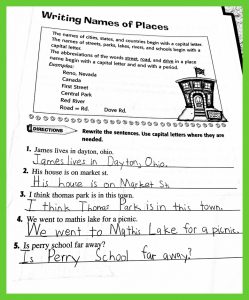 Writing Names of Places
The names of cities, states, and countries begin with a capital letter.
The names of streets, parks, lakes, rivers, and schools begin with a
capital letter.
The abbreviations of the words street, road, and drive in a place
name begin with a capital letter and end with a period.
Examples:
Reno, Nevada
Canada
First Street
Central Park
Red River
Road = Rd. Dove Rd.
DIRECTIONS Rewrite the sentences. Use capital letters where they are
needed.
1. James lives in dayton, ohio.
James lives in Dayton, Ohio.
2. His house is on market st.
His house is on Market St
3. I think thomas park is in this town.
I think Thomas Park is in this town.
4. We went to mathis lake for a picnic.
We went to Mathis Lake for a picnic.
5. Is perry school far away?
Is Perry School far away?